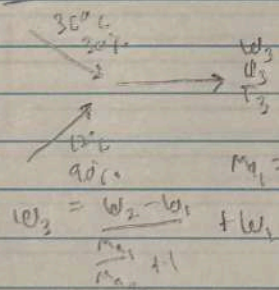 36°C
20%
3
ω3
Φ3
T3
12°C
90%
ma1 =
ω3 = (ω2 - ω1) / (ma1/ma2 + 1) + ω1